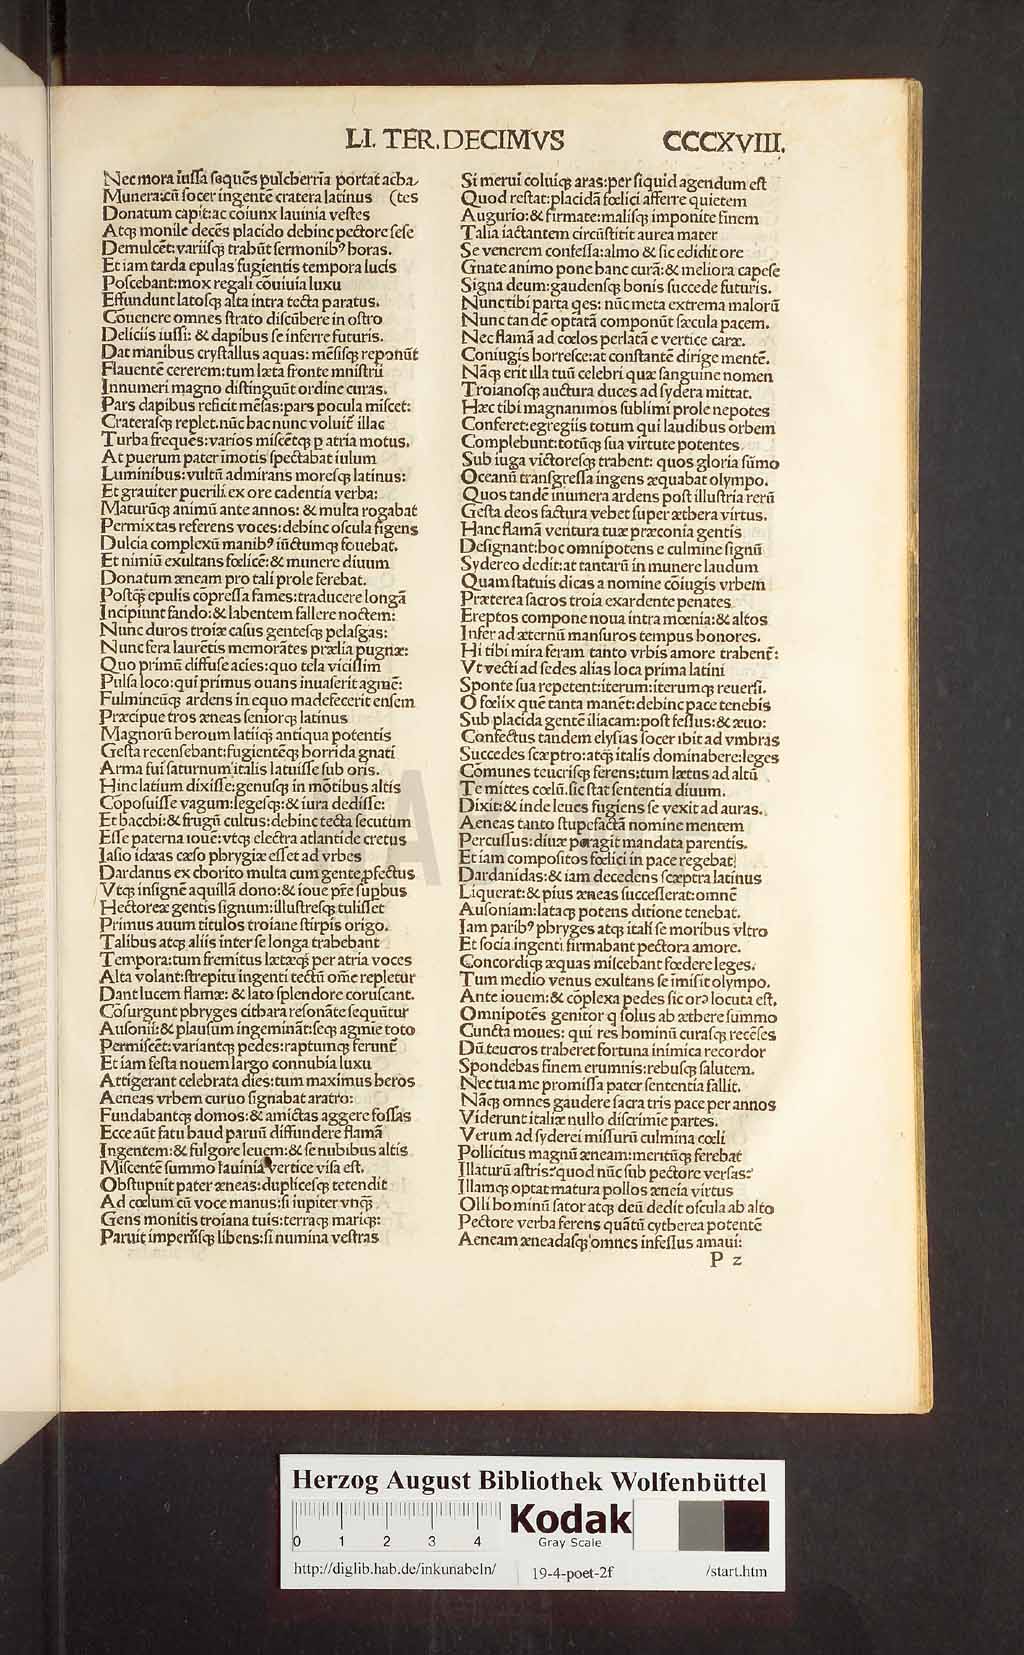 LI. TER. DECIMVS CCCXVIII.
Nec mora iussa sequẽs pulcherrīa portat acha-
Munera: cũ socer ingentẽ cratera latinus (tes
Donatum capit: ac coiunx lauinia vestes
Atqꝫ monile decẽs placido debinc pectore sese
Demulcẽt: variisqꝫ trahũt sermonibꝰ horas.
Et iam tarda epulas fugientis tempora lucis
Poscebant: mox regali cõuiuia luxu
Effundunt latosqꝫ alta intra tecta paratus.
Cõuenere omnes strato discũbere in ostro
Deliciis iussi: & dapibus se inferre futuris.
Dat manibus crystallus aquas: mẽsisqꝫ reponũt
Flauentẽ cererem: tum læta fronte mnistrũ
Innumeri magno distinguũt ordine curas.
Pars dapibus reficit mẽsas: pars pocula miscet:
Craterasqꝫ replet. nũc hac nunc voluit̃ illac
Turba frequẽs: varios miscẽtqꝫ p atria motus.
At puerum pater īmotis spectabat iulum
Luminibus: vultũ admirans moresqꝫ latinus:
Et grauiter puerili ex ore cadentia verba:
Maturũqꝫ animũ ante annos: & multa rogabat
Permixtas referens voces: debinc oscula figens
Dulcia complexũ manibꝰ iũctumqꝫ fouebat.
Et nimiũ exultans fœlicẽ: & munere diuum
Donatum æneam pro tali prole ferebat.
Postqꝫ epulis copressa fames: traducere longã
Incipiunt fando: & labentem fallere noctem:
Nunc duros troiæ casus gentesqꝫ pelasgas:
Nunc fera laurẽtis memorãtes prælia pugnæ:
Quo primũ diffuse acies: quo tela vicissim
Pulsa loco: qui primus ouans inuaserit agmẽ:
Fulmineũqꝫ ardens in equo madefecerit ensem
Præcipue tros æneas seniorqꝫ latinus
Magnorũ heroum latiiqꝫ antiqua potentis
Gesta recensebant: fugientẽqꝫ horrida gnati
Arma fui saturnum: italis latuisse sub oris.
Hinc latium dixisse: genusqꝫ in mõtibus altis
Cõposuisse vagum: legesqꝫ: & iura dedisse:
Et bacchi: & frugũ cultus: debinc tecta secutum
Esse paterna iouẽ: vtqꝫ electra atlantide cretus
Iasio idæas cæso phrygiæ esset ad vrbes
Dardanus ex chorito multa cum gente pfectus
Vtqꝫ insignẽ aquillã dono: & ioue pr̃e suphus
Hectoreæ gentis signum: illustresqꝫ tulisset
Primus auum titulos troiane stirpis origo.
Talibus atqꝫ aliis inter se longa trahebant
Tempora: tum fremitus lætæqꝫ per atria voces
Alta volant: strepitu ingenti tectũ om̃e repletur
Dant lucem flamæ: & lato splendore coruscant.
Cõsurgunt phryges cithara resonãte sequũtur
Ausonii: & plausum ingeminãt: seqꝫ agmīe toto
Permiscẽt: variantqꝫ pedes: raptumqꝫ ferunt̃
Et iam festa nouem largo connubia luxu
Attigerant celebrata dies: tum maximus heros
Aeneas vrbem curuo signabat aratro:
Fundabantqꝫ domos: & amictas aggere fossas
Ecce aũt fatu haud paruũ diffundere flamã
Ingentem: & fulgore leuem: & se nubibus altis
Miscentẽ summo lauiniæ vertice visa est.
Obstupuit pater æneas: duplicesqꝫ tetendit
Ad cœlum cũ voce manus: si iupiter vnqꝫ
Gens monitis troiana tuis: terraqꝫ mariqꝫ:
Paruit imperiisqꝫ libens: si numina vestras
Si merui coluiqꝫ aras: per siquid agendum est
Quod restat: placidã fœlici afferre quietem
Augurio: & firmate: malisqꝫ imponite finem
Talia iactantem circũstitit aurea mater
Se venerem confessa: almo & sic edidit ore
Gnate animo pone hanc curã: & meliora capese
Signa deum: gaudensqꝫ bonis succede futuris.
Nunc tibi parta qes: nũc meta extrema malorũ
Nunc tan dẽ optatã componũt sæcula pacem.
Nec flamã ad cœlos perlatã e vertice caræ.
Coniugis horresce: at constantẽ dirige mentẽ.
Nãqꝫ erit illa tuũ celebri quæ sanguine nomen
Troianosqꝫ auctura duces ad sydera mittat.
Hæc tibi magnanimos sublimi prole nepotes
Conferet: egregiis totum qui laudibus orbem
Complebunt: totũqꝫ sua virtute potentes
Sub iuga victoresqꝫ trahent: quos gloria sũmo
Oceanũ transgressa ingens æquabat olympo.
Quos tandẽ inumera ardens post illustria rerũ
Gesta deos factura vehet super æthera virtus.
Hanc flamã ventura tuæ præconia gentis
Designant: hoc omnipotens e culmine signũ
Sydereo dedit: at tantarũ in munere laudum
Quam statuis dicas a nomine cõiugis vrbem
Præterea sacros troia ex ardente penates
Ereptos compone noua intra mœnia: & altos
Infer ad æternũ mansuros tempus honores.
Hi tibi mira feram tanto vrbis amore trahent̃:
Vt vecti ad sedes alias loca prima latini
Sponte sua repetent: iterum: iterumqꝫ reuersi.
O fœlix quẽ tanta manẽt: debinc pace tenebis
Sub placida gentẽ iliacam: post fessus: & æuo:
Confectus tandem elysias socer ibit ad vmbras
Succedes scæptro: atqꝫ italis dominabere: leges
Cõmunes teucrisqꝫ ferens: tum lætus ad altũ
Te mittes cœlũ. sic stat sententia diuum.
Dixit: & inde leues fugiens se vexit ad auras.
Aeneas tanto stupefactã nomine mentem
Percussus: diuæ peragit mandata parentis.
Et iam compositos fœlici in pace regebat:
Dardanidas: & iam decedens scæptra latinus
Liquerat: & pius æneas successerat: omnẽ
Ausoniam: lataqꝫ potens ditione tenebat.
Iam paribꝰ phryges atqꝫ itali se moribus vltro
Et socia ingenti firmabant pectora amore.
Concordiqꝫ æquas miscebant fœdere leges.
Tum medio venus exultans se īmisit olympo.
Ante iouem: & cõplexa pedes sic orꝛ locuta est.
Omnipotẽs genitor q solus ab æthere summo
Cuncta moues: qui res hominũ curasqꝫ recẽses
Dũ teucros traheret fortuna inimica recordor
Spondebas finem erumnis: rebusqꝫ salutem.
Nec tua me promissa pater sententia fallit.
Nãqꝫ omnes gaudere sacra tris pace per annos
Viderunt italiæ nullo discrimie partes.
Verum ad syderei missurũ culmina cœli
Pollicitus magnũ æneam: meritũqꝫ ferebat
Illaturũ astris: quod nũc sub pectore versas?
Illamqꝫ optat matura pollos æneia virtus
Olli hominũ sator atqꝫ deũ dedit oscula ab alto
Pectore verba ferens quãtũ cytherea potentẽ
Aeneam æneadasqꝫ omnes infessus amaui:
P z
Herzog August Bibliothek Wolfenbüttel
0 1 2 3 4
Kodak
Gray Scale
http://diglib.hab.de/inkunabeln/ 19-4-poet-2f /start.htm